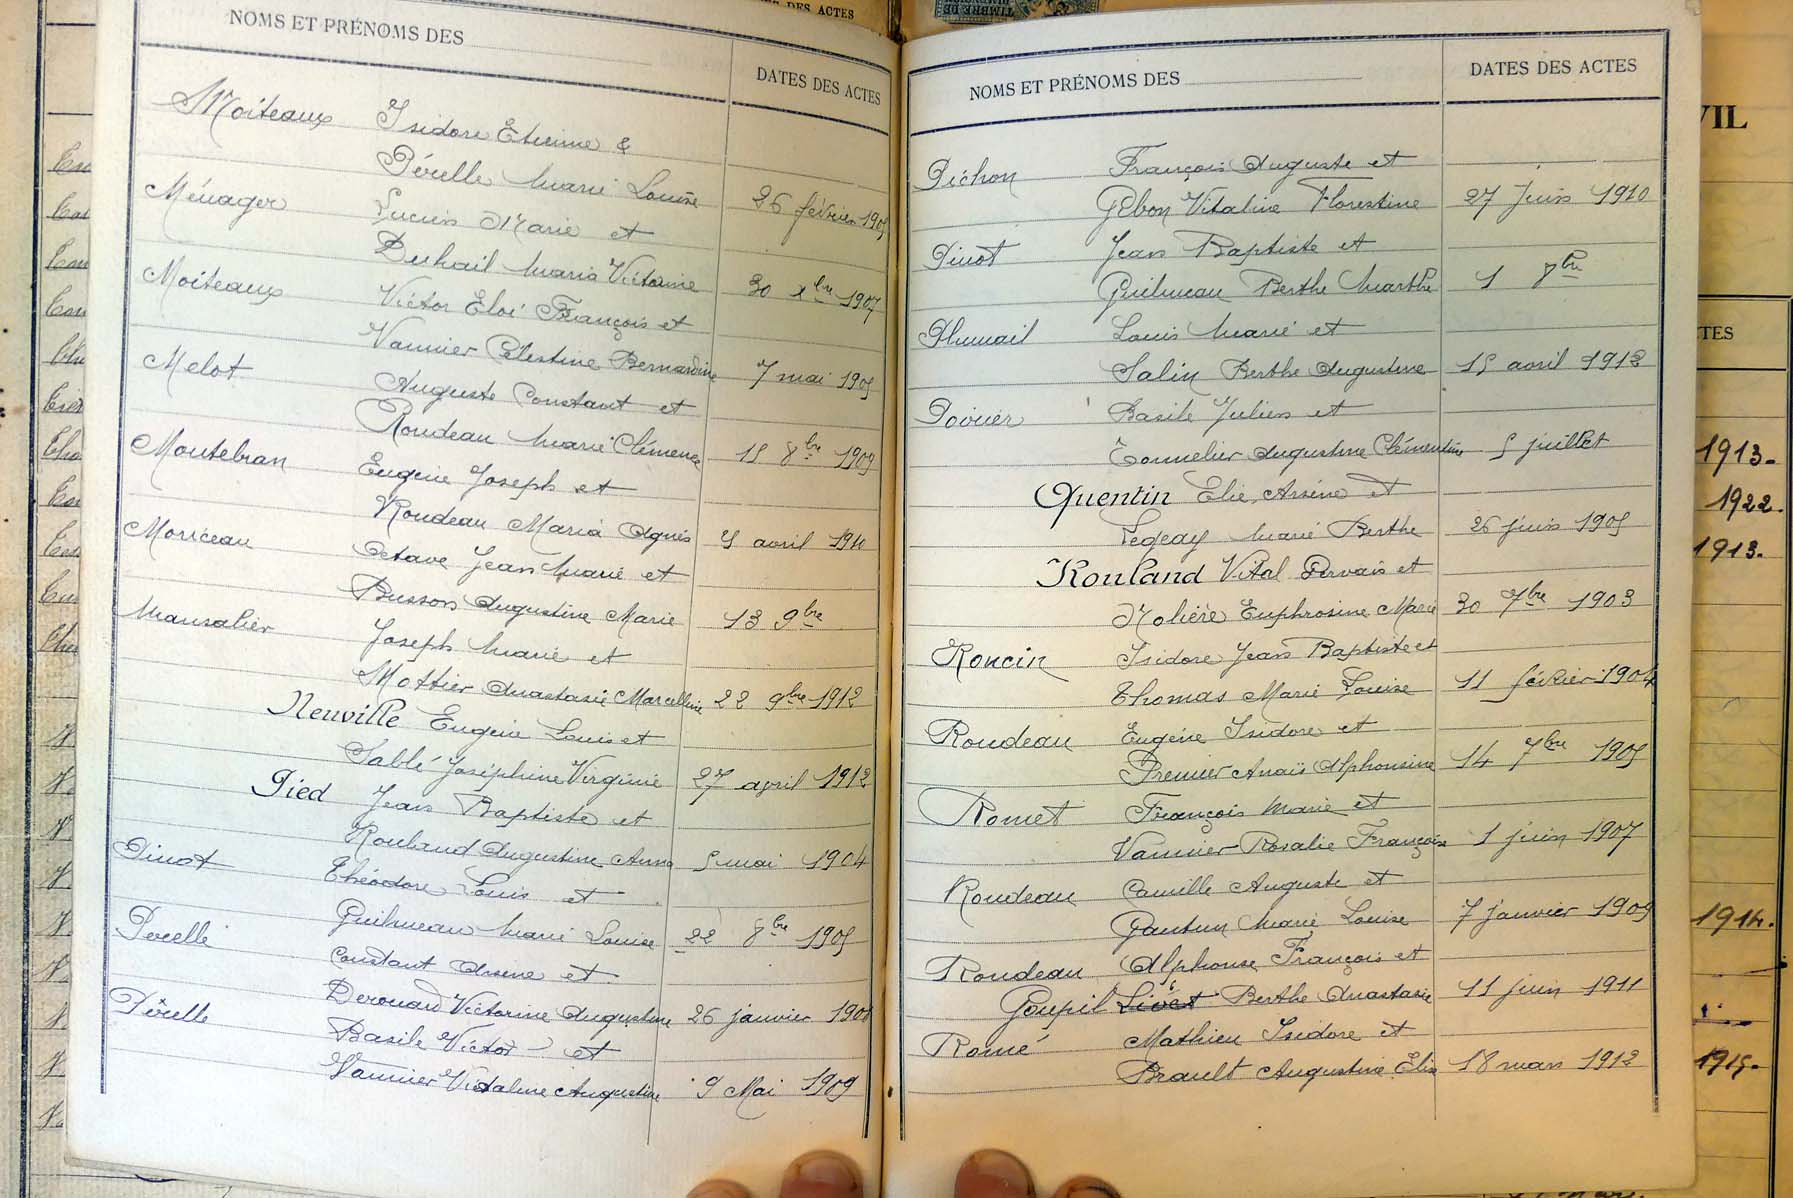 DES ACTES
TIMBRE DE
NOMS ET PRÉNOMS DES
DATES DES ACTES
Moiteaux Isidore Etienne &
Pérelle Marie Louise 26 février
Ménager Lucien Marie et
Duhail Maria Victorine 30 xbre 1907
Moiteaux Victor Eloi François et
Vannier Célestine Bernardine 7 mai 1905
Melot Auguste Constant et
Roudeau Marie Clémence 15 8bre 1909
Montebran Eugène Joseph et
Roudeau Maria Agnès 5 avril 1910
Moriceau Octave Jean Marie et
Busson Augustine Marie 13 9bre
Mansalier Joseph Marie et
Mottier Anastasie Marcelline 22 9bre 1912
Neuville Eugène Louis et
Sablé Joséphine Virginie 27 avril 1912
Pied Jean Baptiste et
Rouland Augustine Anna 5 mai 1904
Pinot Théodore Louis et
Guilmeau Marie Louise 22 8bre 1905
Pérelle Constant Arsène et
Derouard Victorine Augustine 26 janvier
Pérelle Basile Victor et
Vannier Vitaline Augustine 9 Mai 1909
NOMS ET PRÉNOMS DES
DATES DES ACTES
Pichon François Auguste et
Gébon Vitaline Florestine 27 Juin 1910
Pinot Jean Baptiste et
Guilmeau Berthe Marthe 1 8bre
Plumail Louis Marie et
Salin Berthe Augustine 15 avril 1912
Poirier Basile Julien et
Tonnelier Augustine Clémentine 5 juillet
Quentin Elie Arsène et
Legeay Marie Berthe 26 juin 1905
Rouland Vital Gervais et
Molière Euphrosine Marie 30 7bre 1903
Roncin Isidore Jean Baptiste et
Thomas Marie Louise 11 février 1904
Roudeau Eugène Isidore et
Premier Anaïs Alphonsine 14 7bre 1905
Romet François Marie et
Vannier Rosalie Françoise 1 juin 1907
Roudeau Camille Auguste et
Marie Louise 7 janvier 1909
Roudeau Alphonse François et
Goupil Livet Berthe Anastasie 11 juin 1911
Romé Mathieu Isidore et
Brault Augustine Elise 18 mars 1912
VIL
CTES
1913.
1922.
1913.
1914.
1915.